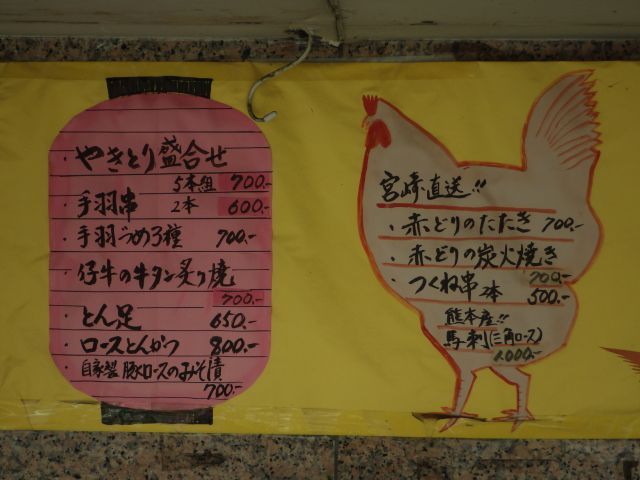 ・やきとり盛合せ
5本組 700.-
・手羽串 2本 600.-
・手羽づめ3種 700.-
・仔牛の牛タン炙り焼
700.-
・とん足 650.-
・ロースとんかつ 800.-
・自家製豚ロースのみそ漬
700.-
宮崎直送!!
・赤どりのたたき 700.-
・赤どりの炭火焼き
700.-
・つくね串 2本 500.-
熊本産!!
馬刺(三角ロース)
1000.-